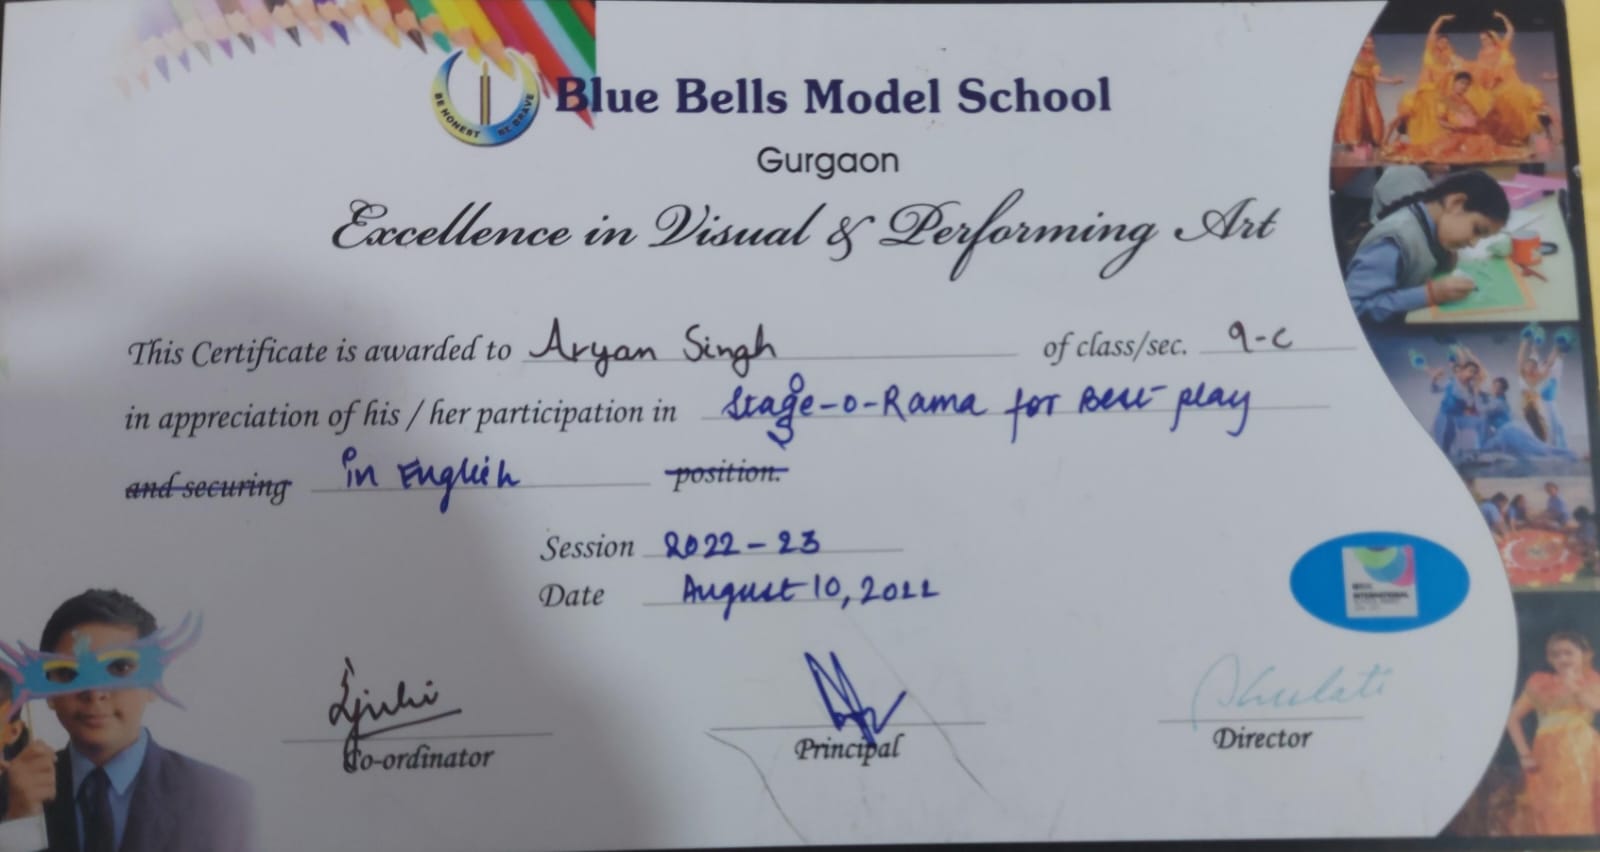 BE HONEST BE BRAVE
Blue Bells Model School
Gurgaon
Excellence in Visual & Performing Art
This Certificate is awarded to Aryan Singh of class/sec. 9-C
in appreciation of his / her participation in Stage-o-Rama for Best play
and securing in English position.
Session 2022-23
Date August 10, 2022
Co-ordinator
Principal
Director
INTERNATIONAL